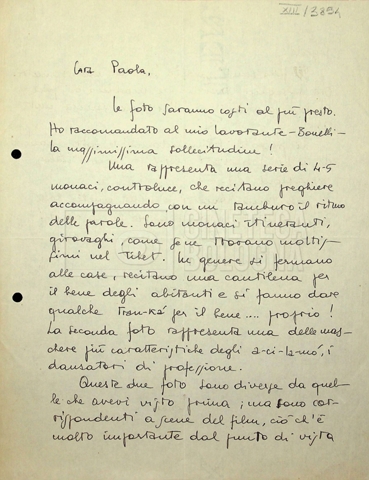 XIII / 3894
Cara Paola,
le foto saranno costì al più presto.
Ho raccomandato al mio lavorante – Bonelli –
la massimissima sollecitudine!
Una rappresenta una serie di 4-5
monaci, controluce, che recitano preghiere
accompagnando con un tamburo il ritmo
delle parole. Sono monaci itineranti,
girovaghi, come se ne trovano moltis-
simi nel Tibet. In genere si fermano
alle case, recitano una cantilena per
il bene degli abitanti e si fanno dare
qualche tran-ka per il bene .... proprio!
La seconda foto rappresenta una delle mas-
chere più caratteristiche degli a-ci-la-mó, i
danzatori di professione.
Queste due foto sono diverse da quel-
le che avevi visto prima; ma sono cor-
rispondenti a scene del film, ciò ch'è
molto importante dal punto di vista